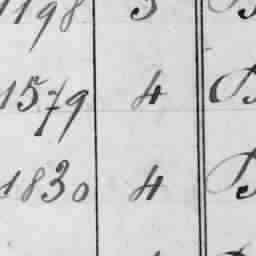 1198 3 B
1579 4 B
1830 4 B